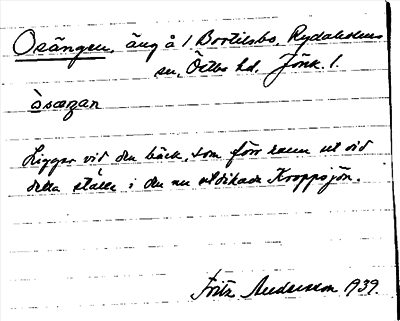 Osängen, äng å 1 Bortilsbo, Rydaholms
sn, Östbo hd, Jönk. l.
òsæŋan
Ligger vid den bäck, som förr rann ut vid
detta ställe i den nu utdikade Kroppsjön.
Fritz Andersson 1939.